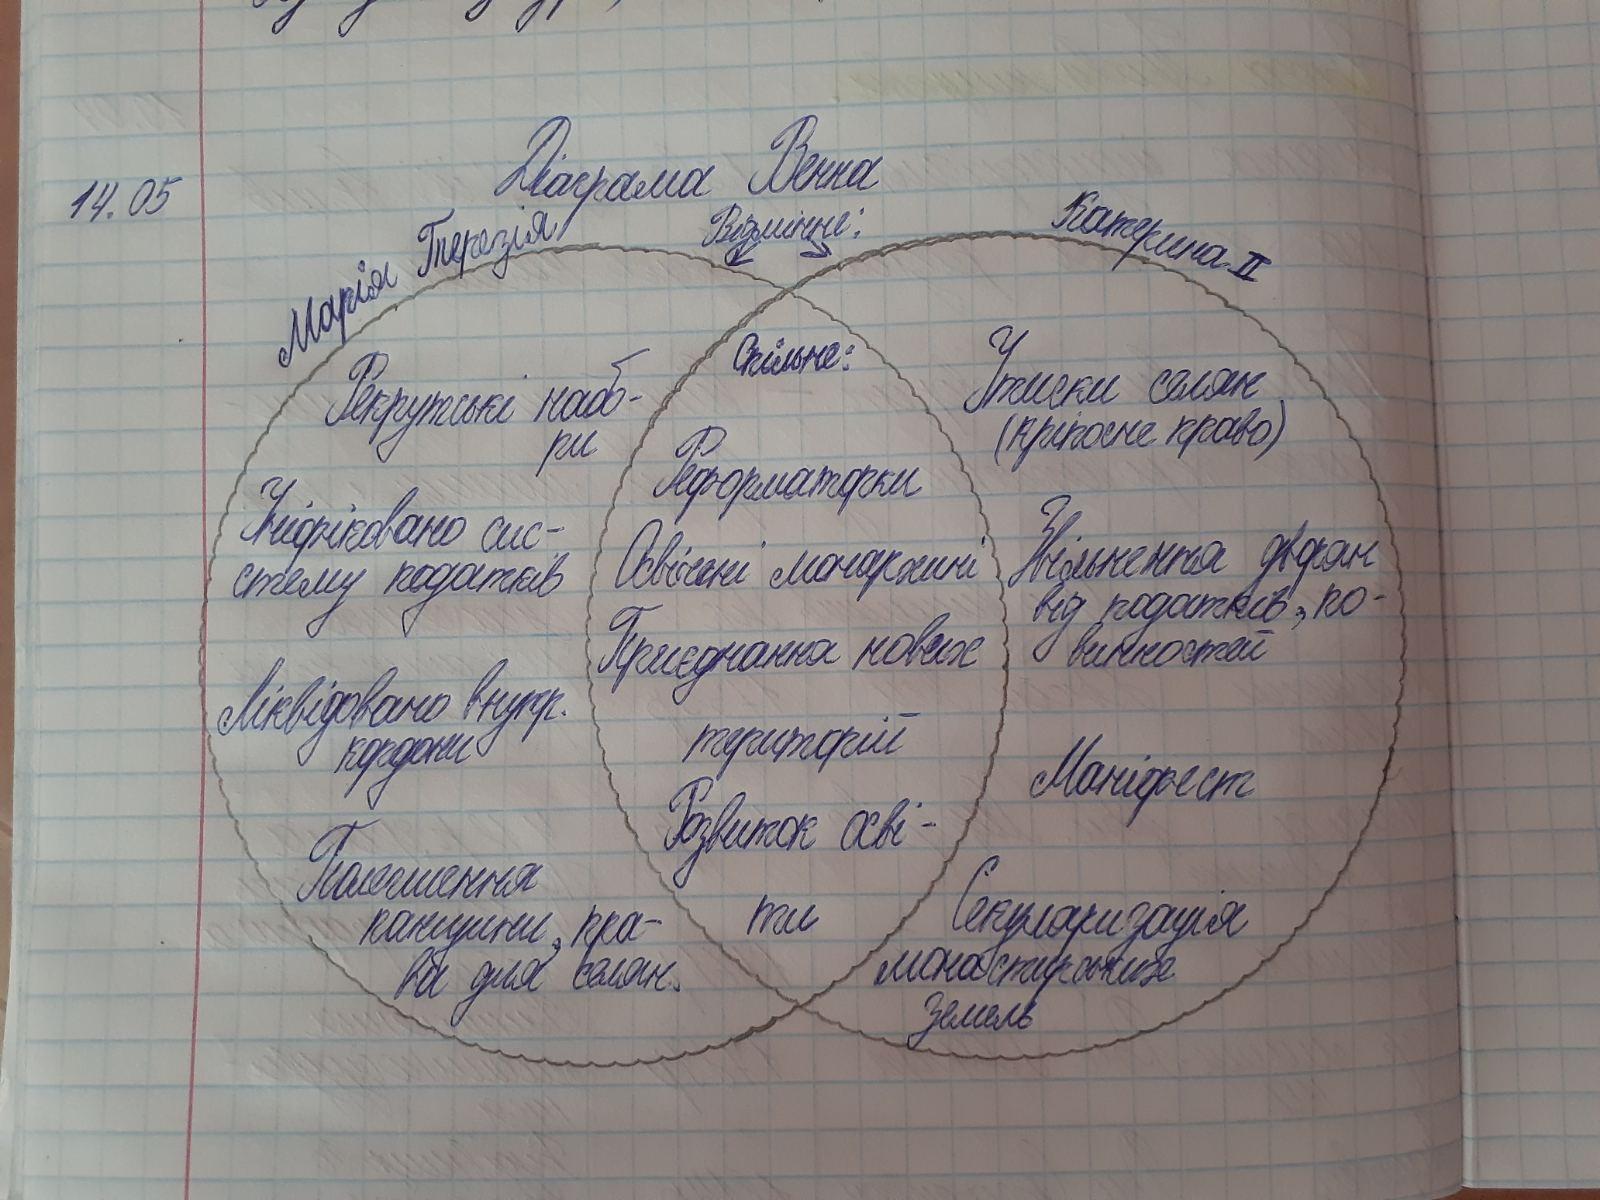 14.05
Діаграма Венна
Відмінне:
Марія Терезія
Катерина II
Рекрутські набо-
ри
Уніфіковано сис-
стему податків
Ліквідовано внутр.
кордони
Полегшення
панщини, пра-
ва для селян.
Спільне:
Реформаторки
Освічені монархині
Приєднання нових
територій
Розвиток осві-
ти
Утиски селян
(кріпосне право)
Звільнення дворян
від податків, по-
винностей
Маніфест
Секуляризація
монастирських
земель